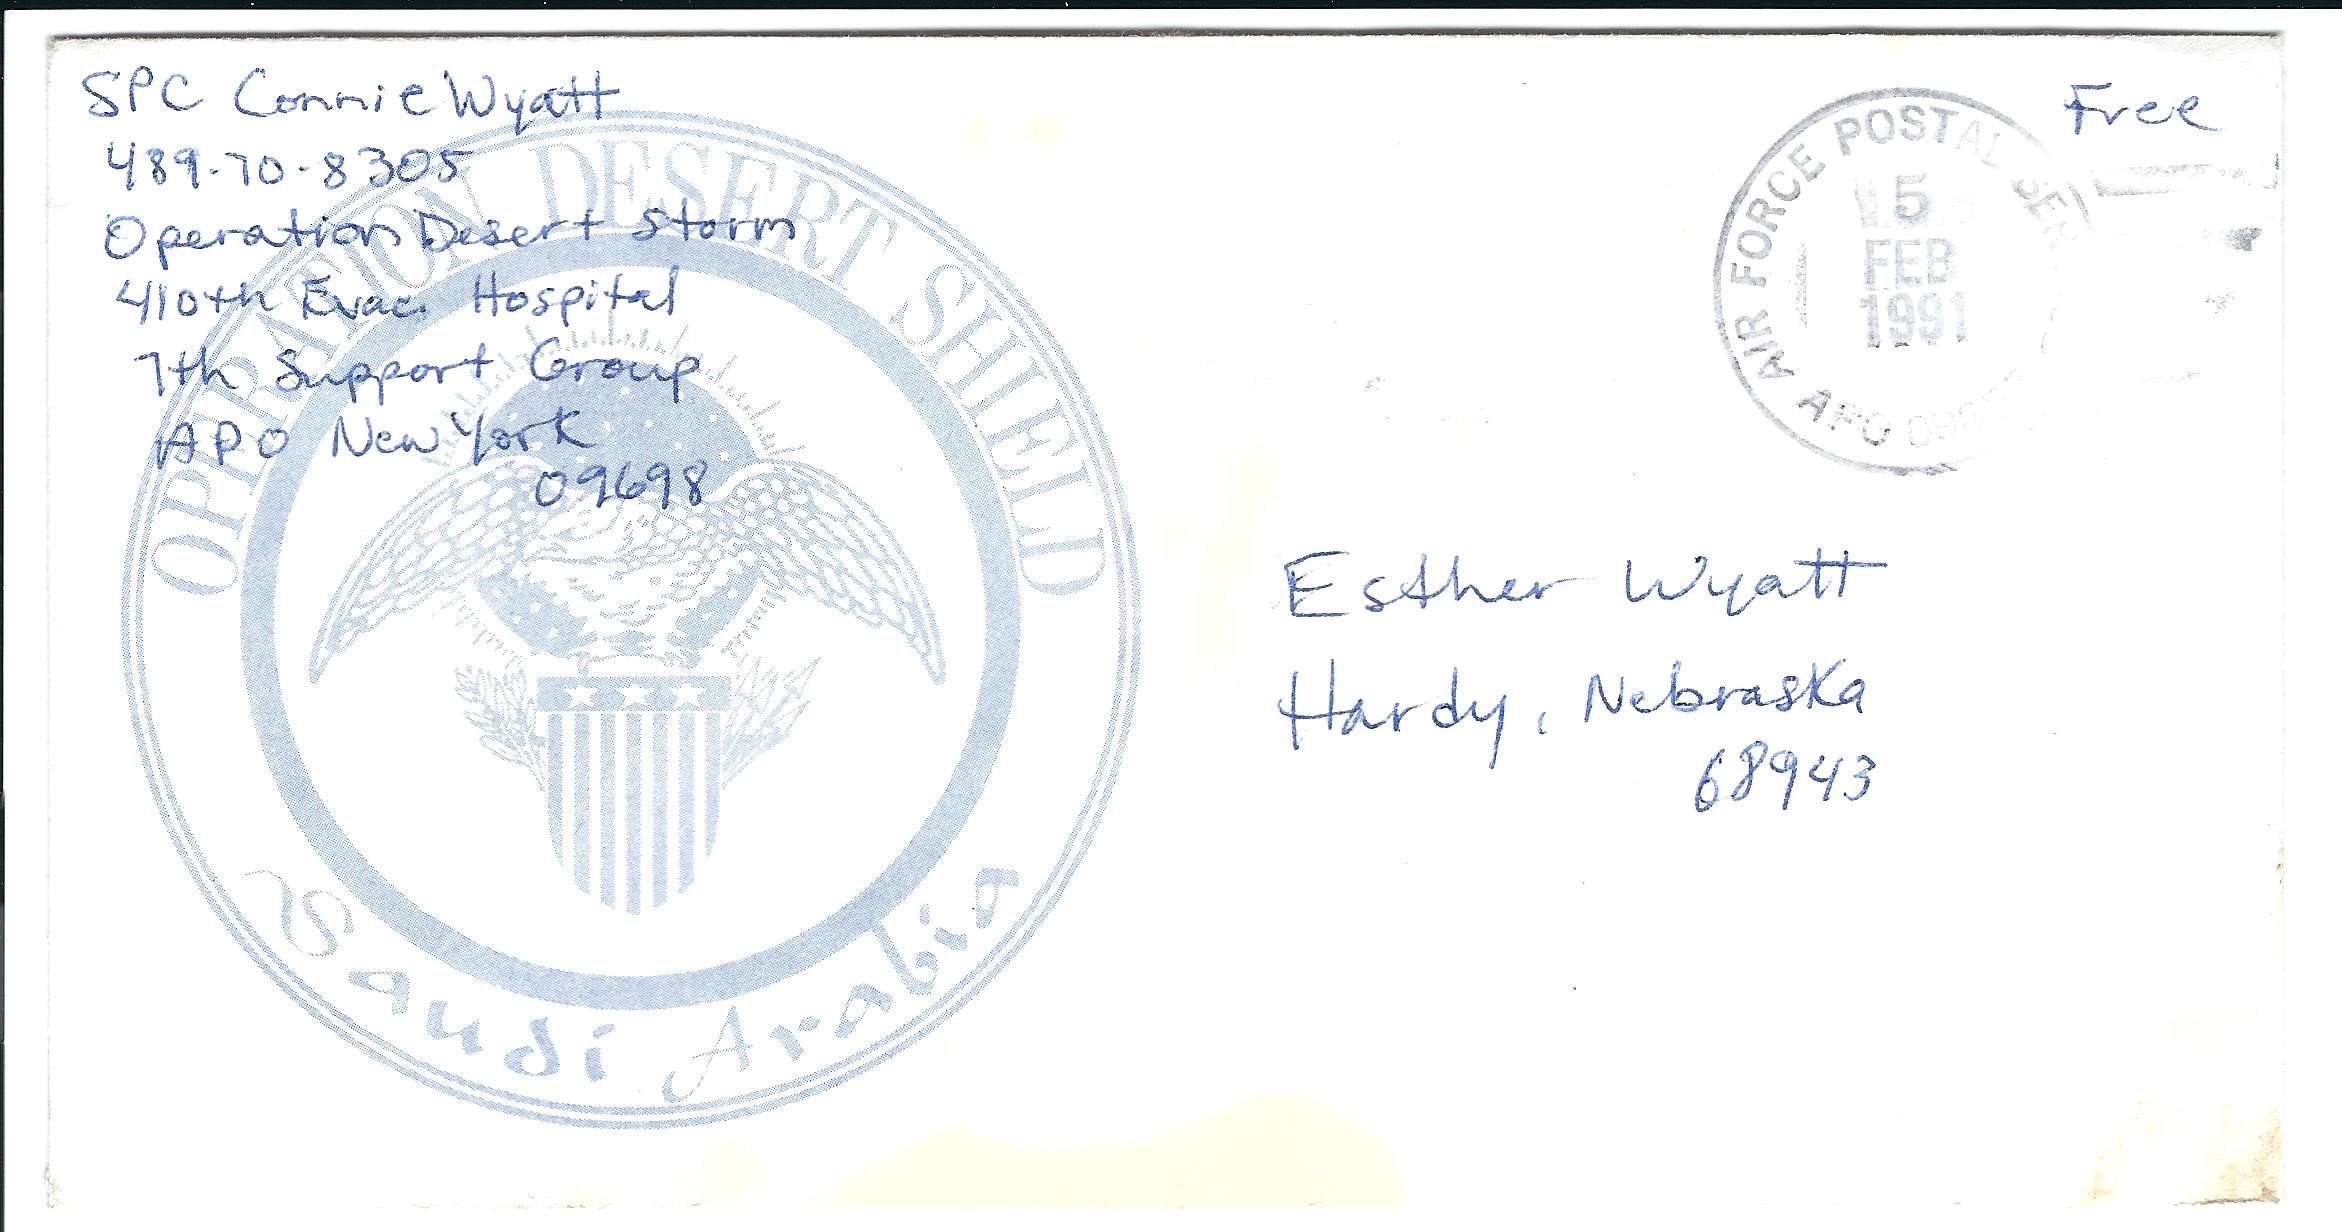 SPC Connie Wyatt
489-70-8305
Operation Desert Storm
410th Evac. Hospital
7th Support Group
APO New York
09698
OPERATION DESERT SHIELD
Saudi Arabia
Free
AIR FORCE POSTAL
FEB
1991
APO
Esther Wyatt
Hardy, Nebraska
68943